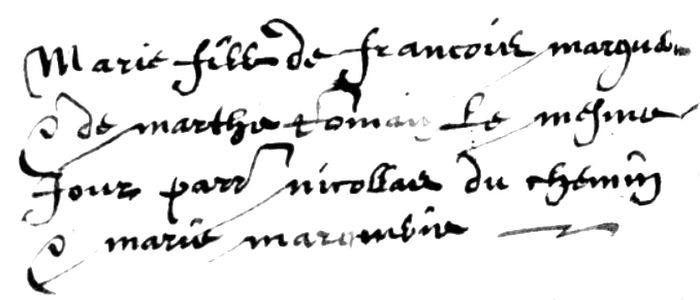 Marie fille de francois marque
& de marthe le mesme
Jour parr nicollas du chemin
& marie